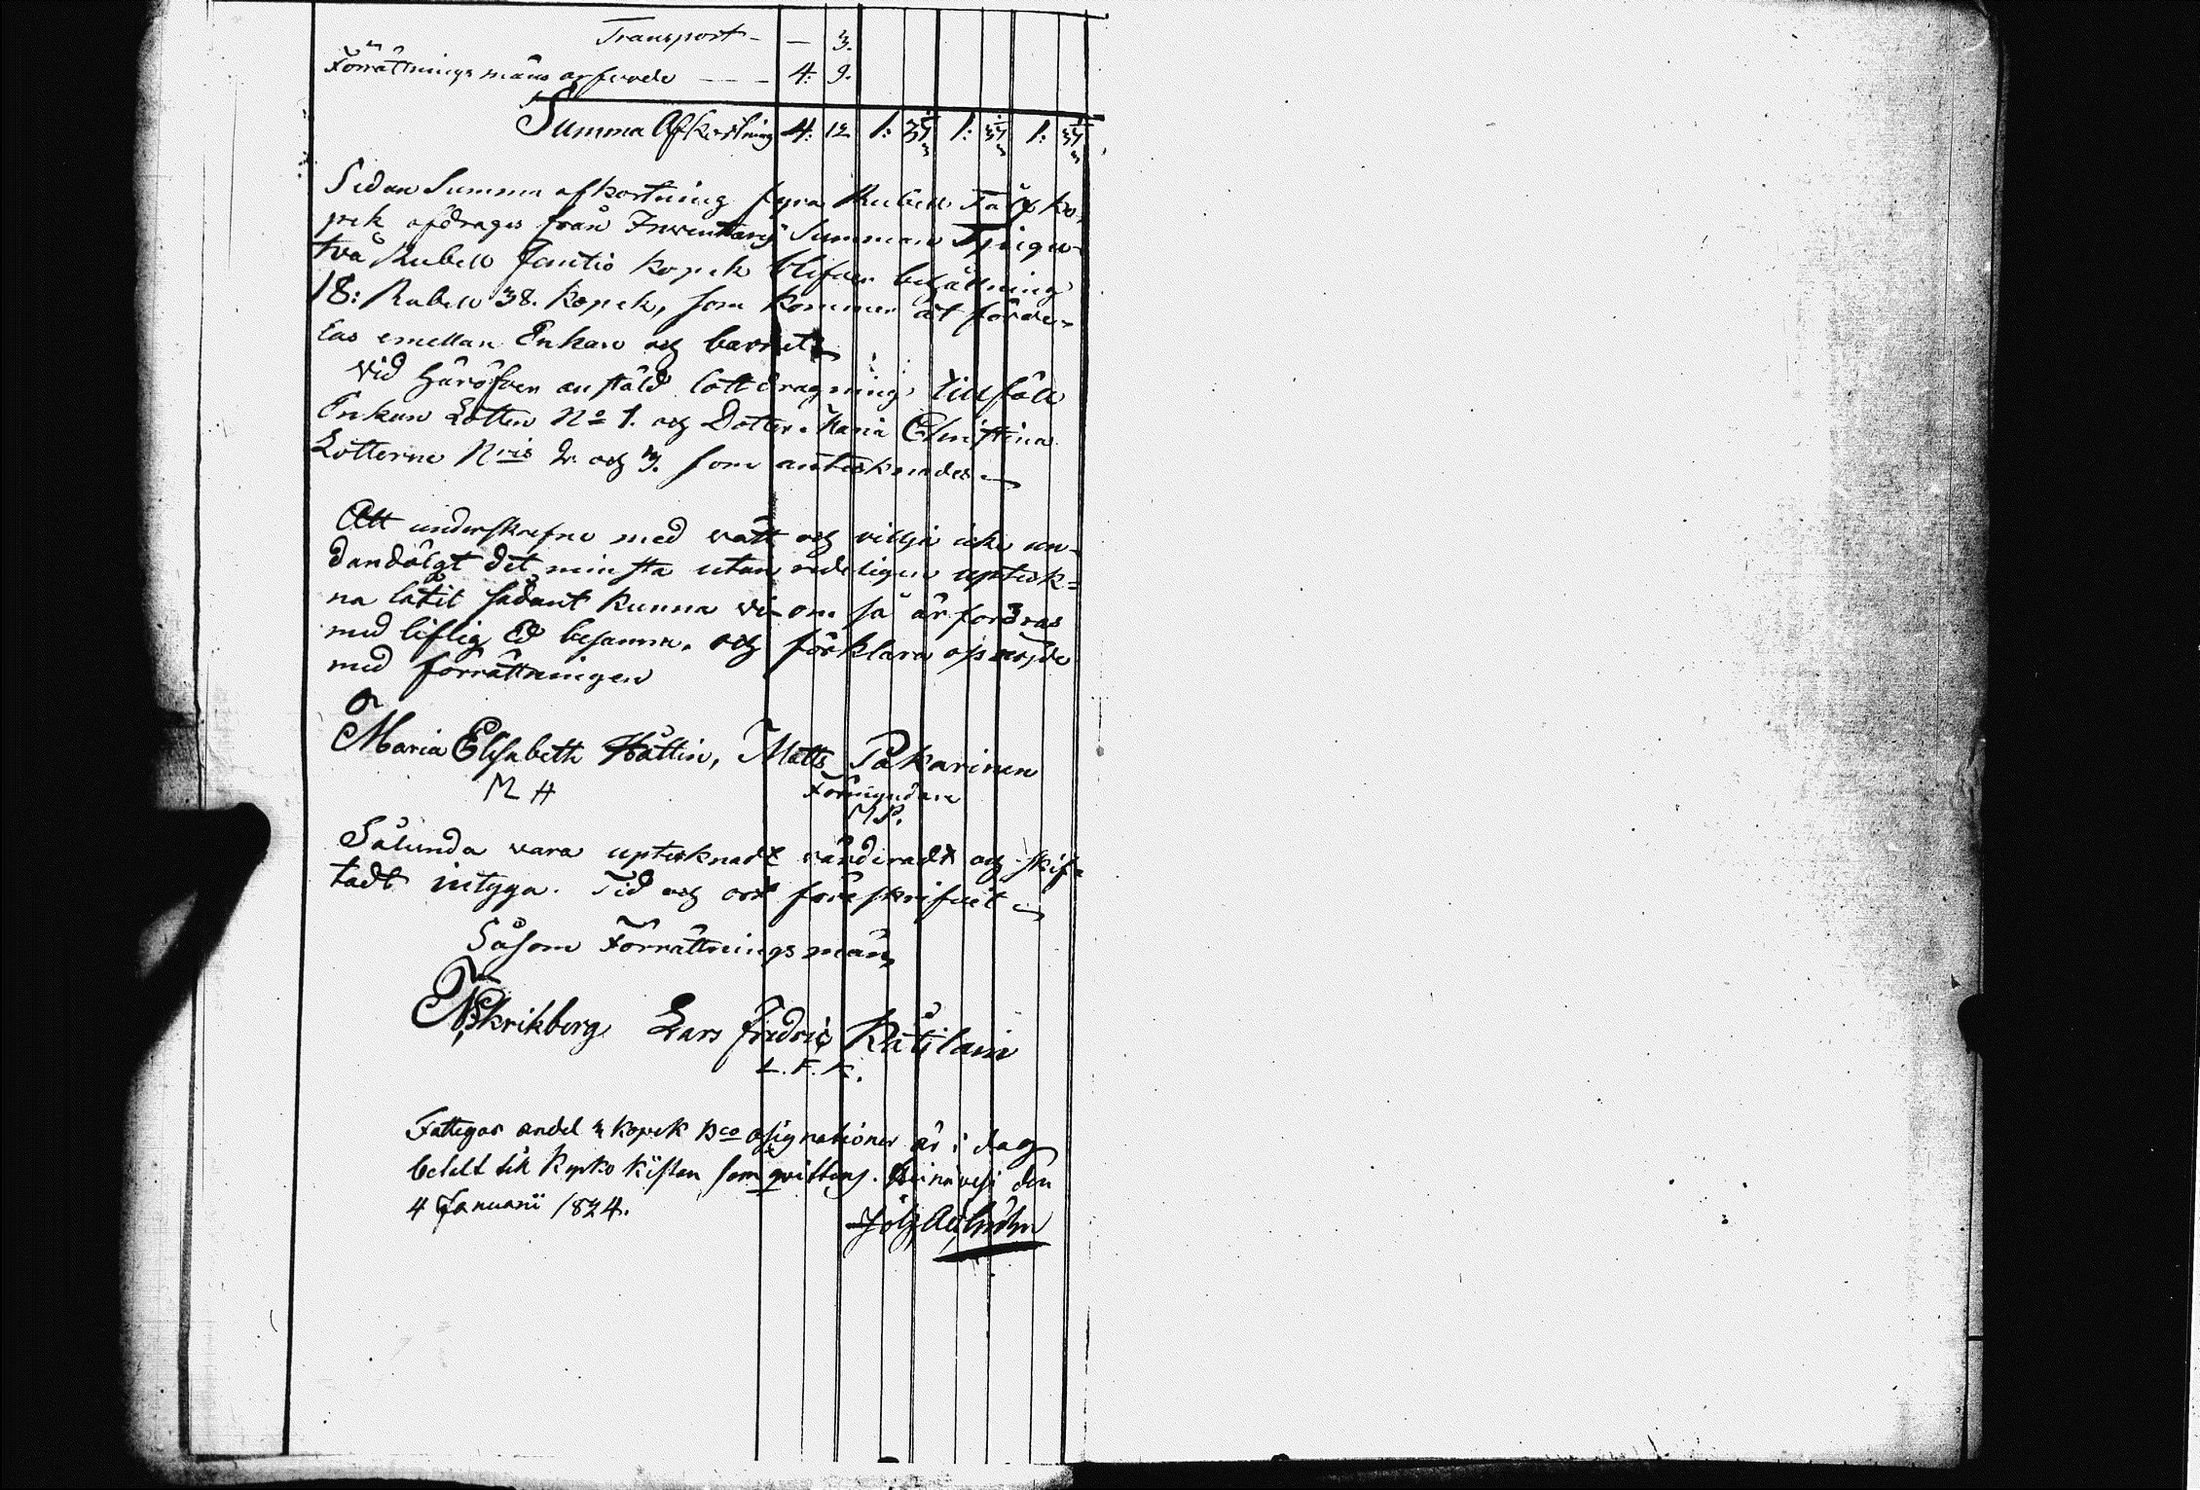 Transport - — 3.
Förrättnings mäns arfvode — — 4: 9.
Summa Afkortning 4: 12 1: 37 1/3 1: 37 1/3 1: 37 1/3
Sedan Summa afkortning fyra Rubell Tolf ko-
pek afdrages från Inventarii Summan Tjugu-
två Rubell femtio kopek blifver behållning
18: Rubell 38. kopek, som kommer at förde-
las emellan Enkan och barnet
Vid häröfver anstäld lottdragning tillföll
Enkan Lotten No 1. och Dotter Maria Christina
Lotterne Nris 2. och 3. som antecknades
Att underskrefne med vett och vilja icke un-
dandölgt det minsta utan redeligen upteck=
na låtit sådant kunna vi om så ärfordras
med liflig Ed besanna. och förklara oss nöjde
med förrättningen
Maria Elisabeth Hättin, Matts Pakarinen
M H Förmyndare
M.P.
Sålunda vara uptecknadt värderadt och skif-
tadt intyga. Tid och ort föreskrifvit
Såsom Förrättningsmän
Skrikberg Lars Fredric
L. F. K.
Fattigas andel 3 kopek Bco assignationer är i dag
betalt till kyrko kistan som qvitteras. Heinävesi den
4 Januarii 1824.